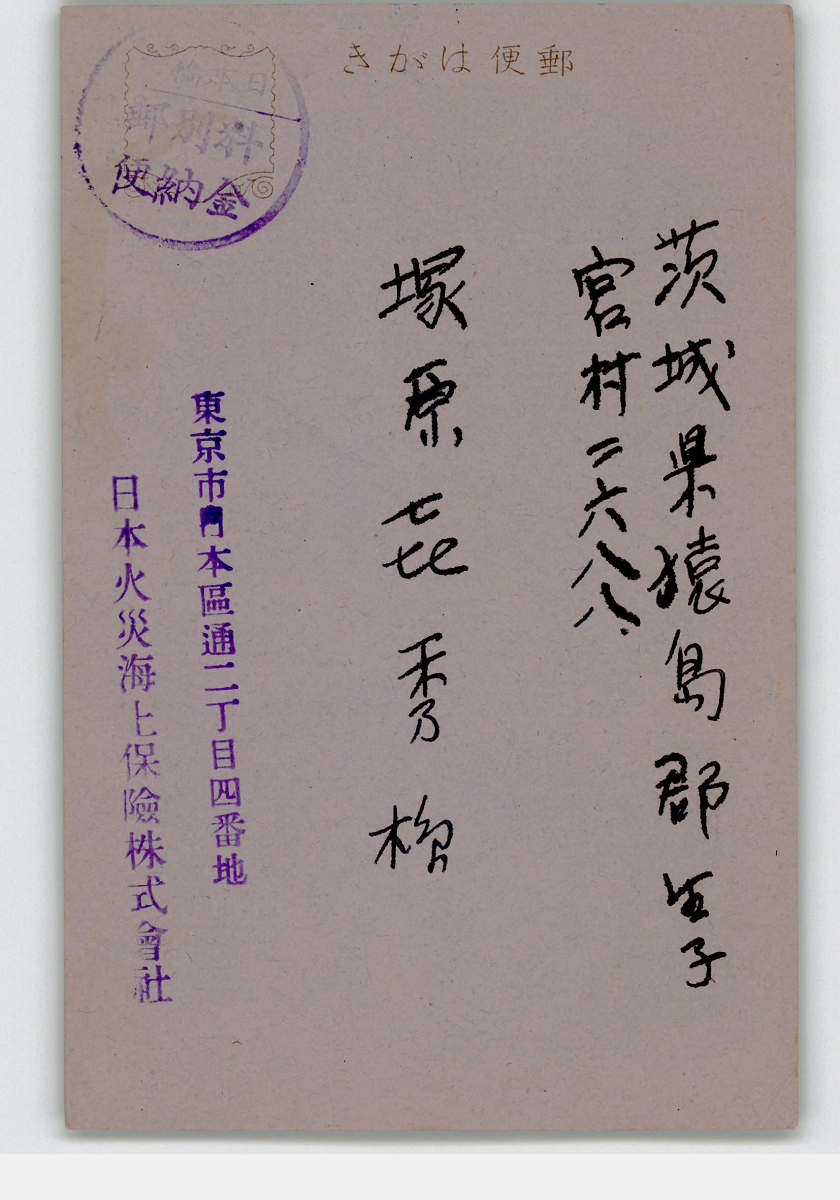 郵便はがき
日本橋
料別郵
金納便
茨城県猿島郡生子
宮村二六八八
塚原㐂秀様
東京市日本區通二丁目四番地
日本火災海上保險株式會社